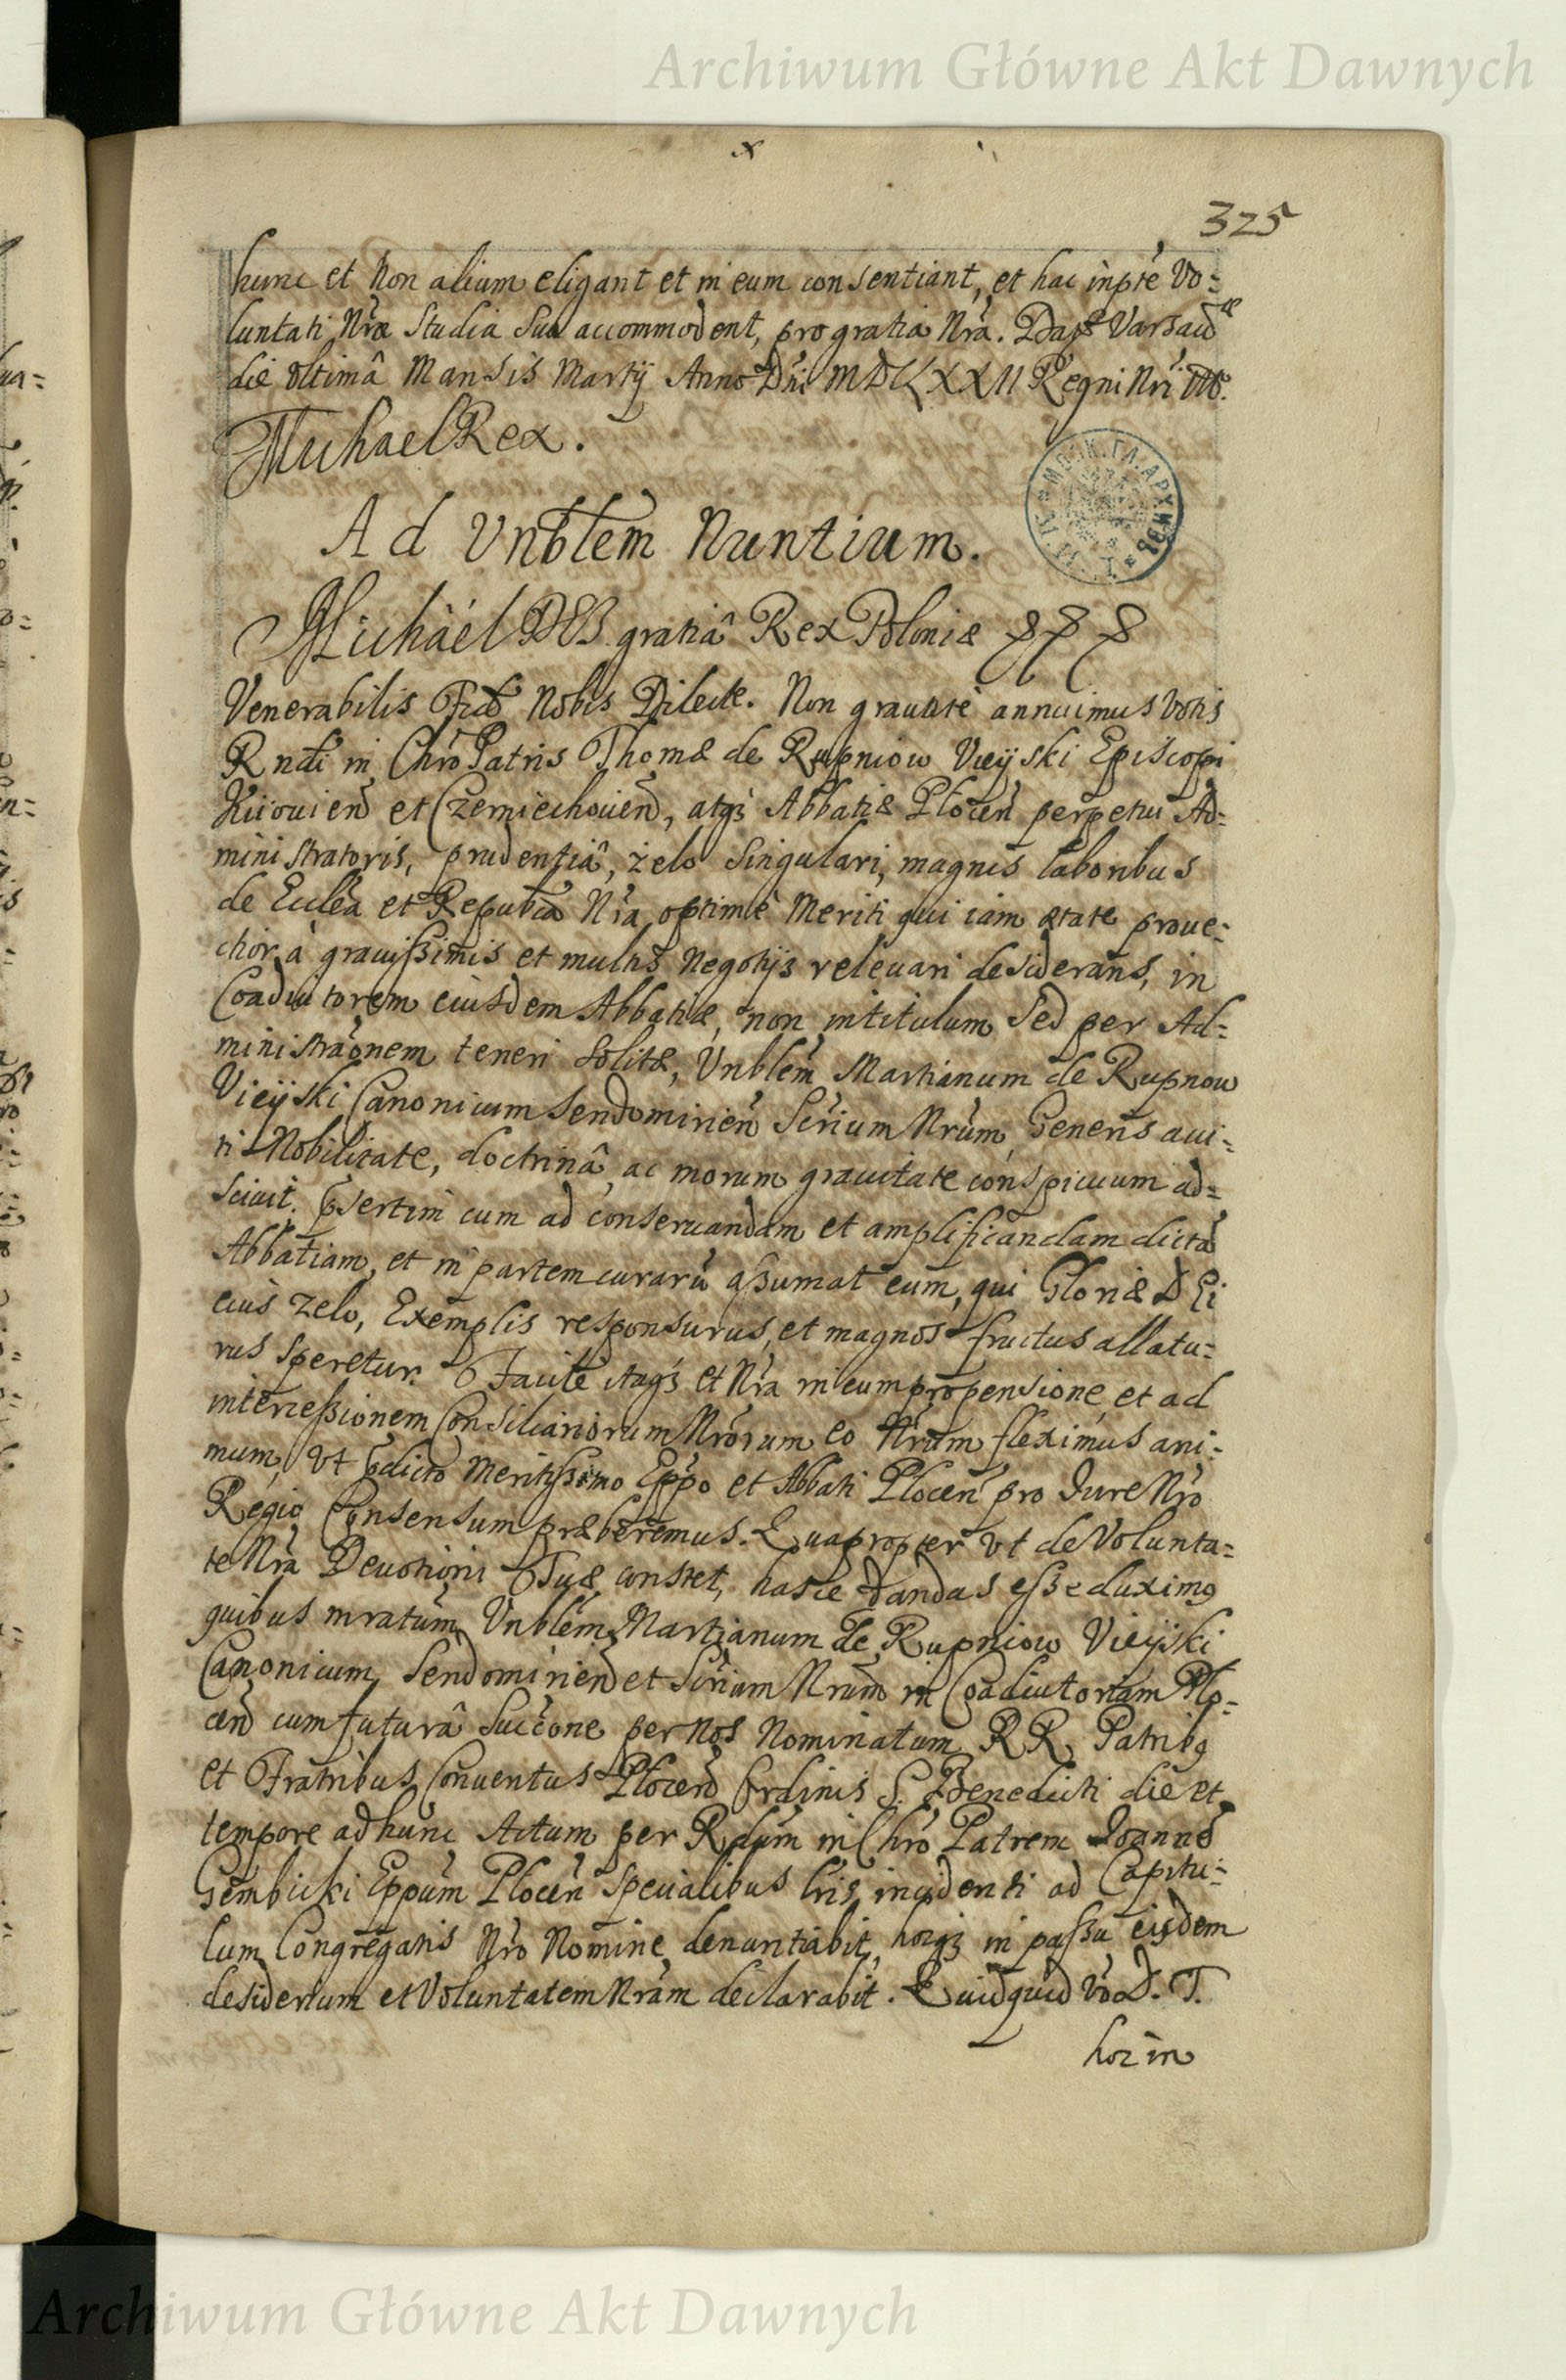 Archiwum Główne Akt Dawnych
325
hunc et Non alium eligant et in eum consentiant, et hac inpte Vo=
luntati Nræ Studia Sua accommodent, pro gratia Nra. Dat Varsaviæ
die Vltimâ Mansis Martij Anno Dni MDCLXXII Regni Nri
Michael Rex.
Ad Vnblem Nuntium.
Michäel DEI gratiâ Rex Poloniæ
Venerabilis Fid Nobis Dilecte. Non grauatè annuimus Votis
Rndi in Chro Patris Thomæ de Rupniow Vieÿski Episcopi
Kiiouien et Czerniechouien, atqz Abbatiæ Plocen perpetui Ad=
ministratoris, prudentiâ, zelo Singulari, magnis laboribus
de Eccléa et Republica Nra optimè Meriti qui iam ætate proue=
ctior à grauissimis et multis Negotijs releuari desiderans, in
Coadiutorem eiusdem Abbatiæ, non intitulum Sed per Ad=
ministraonem teneri Solitæ, Vnblem Martianum de Rupnow
Vieÿski Canonicum Sendomirien Scrium Nrum, Generis aui=
tâ Nobilitate, doctrinâ, ac morum grauitate conspicuum ad=
sciuit. psertim cum ad conseruandam et amplificandam dictã
Abbatiam, et in partem curarũ assumat eum, qui Gloriæ DEi
eius zelo, Exemplis responsurus, et magnos fructus allatu=
rus Speretur. Facilè itaqz et Nra in eum propensione et ad
intercessionem Consiliariorum Nrorum eo Nrum fleximus ani=
mum, vt pdicto Meritissimo Eppo et Abbati Plocen pro Jure Nro
Regio Consensum præberemus. Quapropter vt de Volunta=
te Nra Deuotioni Tuæ constet, hasce dandas esse duximg
quibus mratum Vnblem Martianum de Rupniow Vieÿski
Canonicum Sendomirien et Scrium Nrum in Coadiutoriam Plo=
cen cum futurâ Succone per Nos Nominatum RR. Patribg
et Fratribus Conuentus Plocen Ordinis S. Benedicti die et
tempore ad hunc Actum per Rdum in Chro Patrem Joannẽ
Gembicki Eppum Plocen Specialibus Lris incidenti ad Capitu=
lum Congregatis Nro Nomine denuntiabit, hocqz in passu eisdem
desiderium et Voluntatem Nram declarabit. Quidquid Vo D. T.
hoc in
Archiwum Główne Akt Dawnych